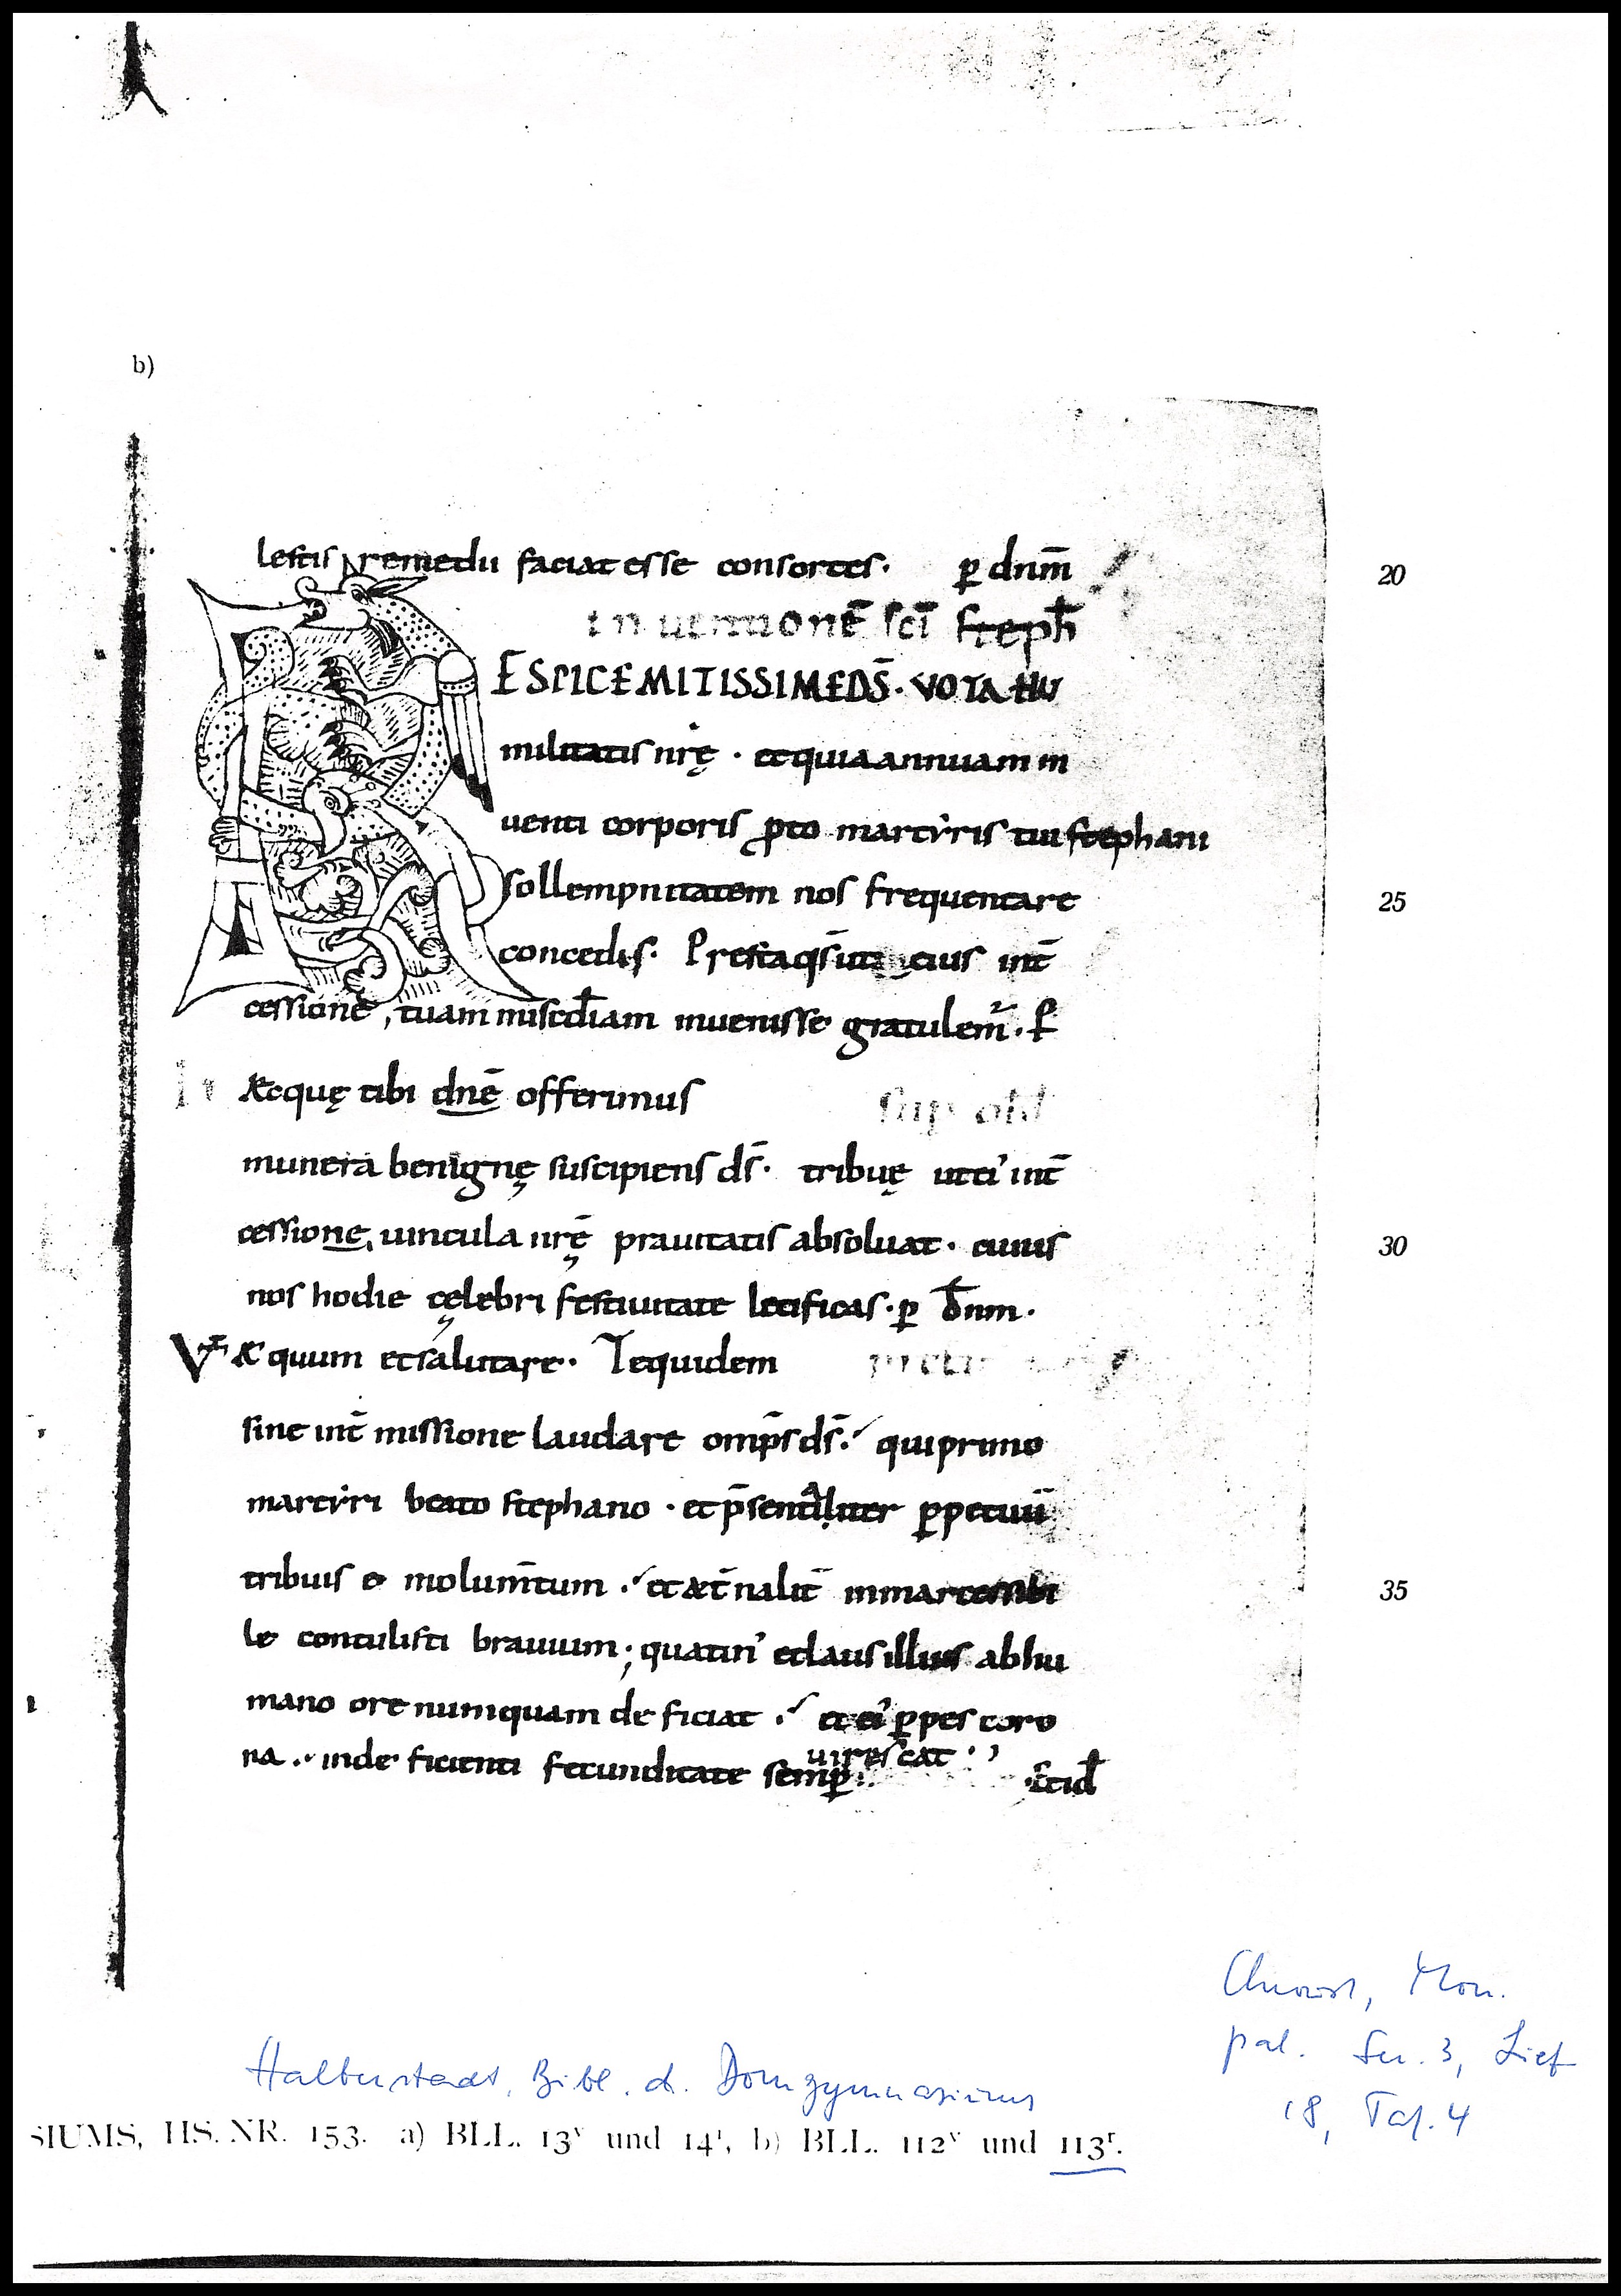 b)
lestis remedii faciat esse consortes. p̲ dnm̄ 20
inuentionē sci̅ steph̄
RESPICE MITISSIME DS̄. VOTA HU
militatis nrę̄ . et quia annuam in
uenti corporis ꝓto martẏris tui stephani
sollempnitatem nos frequentare 25
concedis. Presta qs̄ ut eius int̄
cessione, tuam misćdiam inuenisse gratulem̄. P̲
hęcquę tibi dnē offerimus sup obl̄
munera benignę suscipiens ds̄. tribuę ut ei' int̄
cessione, uincula nrę̄ prauitatis absoluat. cuius 30
nos hodie cęlebri festiuitate letificas. p̲ dn̄m.
V̄ Æquum et salutare. Te quidem
sine int̄missione laudare omp̄s ds̄. qui primo
martẏri beato stephano . et p̄sentialiter p̲petuū
tribuis emolum̄tum . et æt̄nalit̄ inmarcessibi 35
le contulisti brauium; quatin' et laus illius ab hu
mano ore numquam deficiat . et ei' p̲pes coro
na . indeficienti fecunditate semp̲ uirescat. et id̄
Christ, Mon.
pal. Ser. 3, Lief
18, Taf. 4
Halberstadt, Bibl. d. Domgymnasiums
SIUMS, HS. NR. 153. a) BLL. 13ᵛ und 14ʳ, b) BLL. 112ᵛ und 113ʳ.